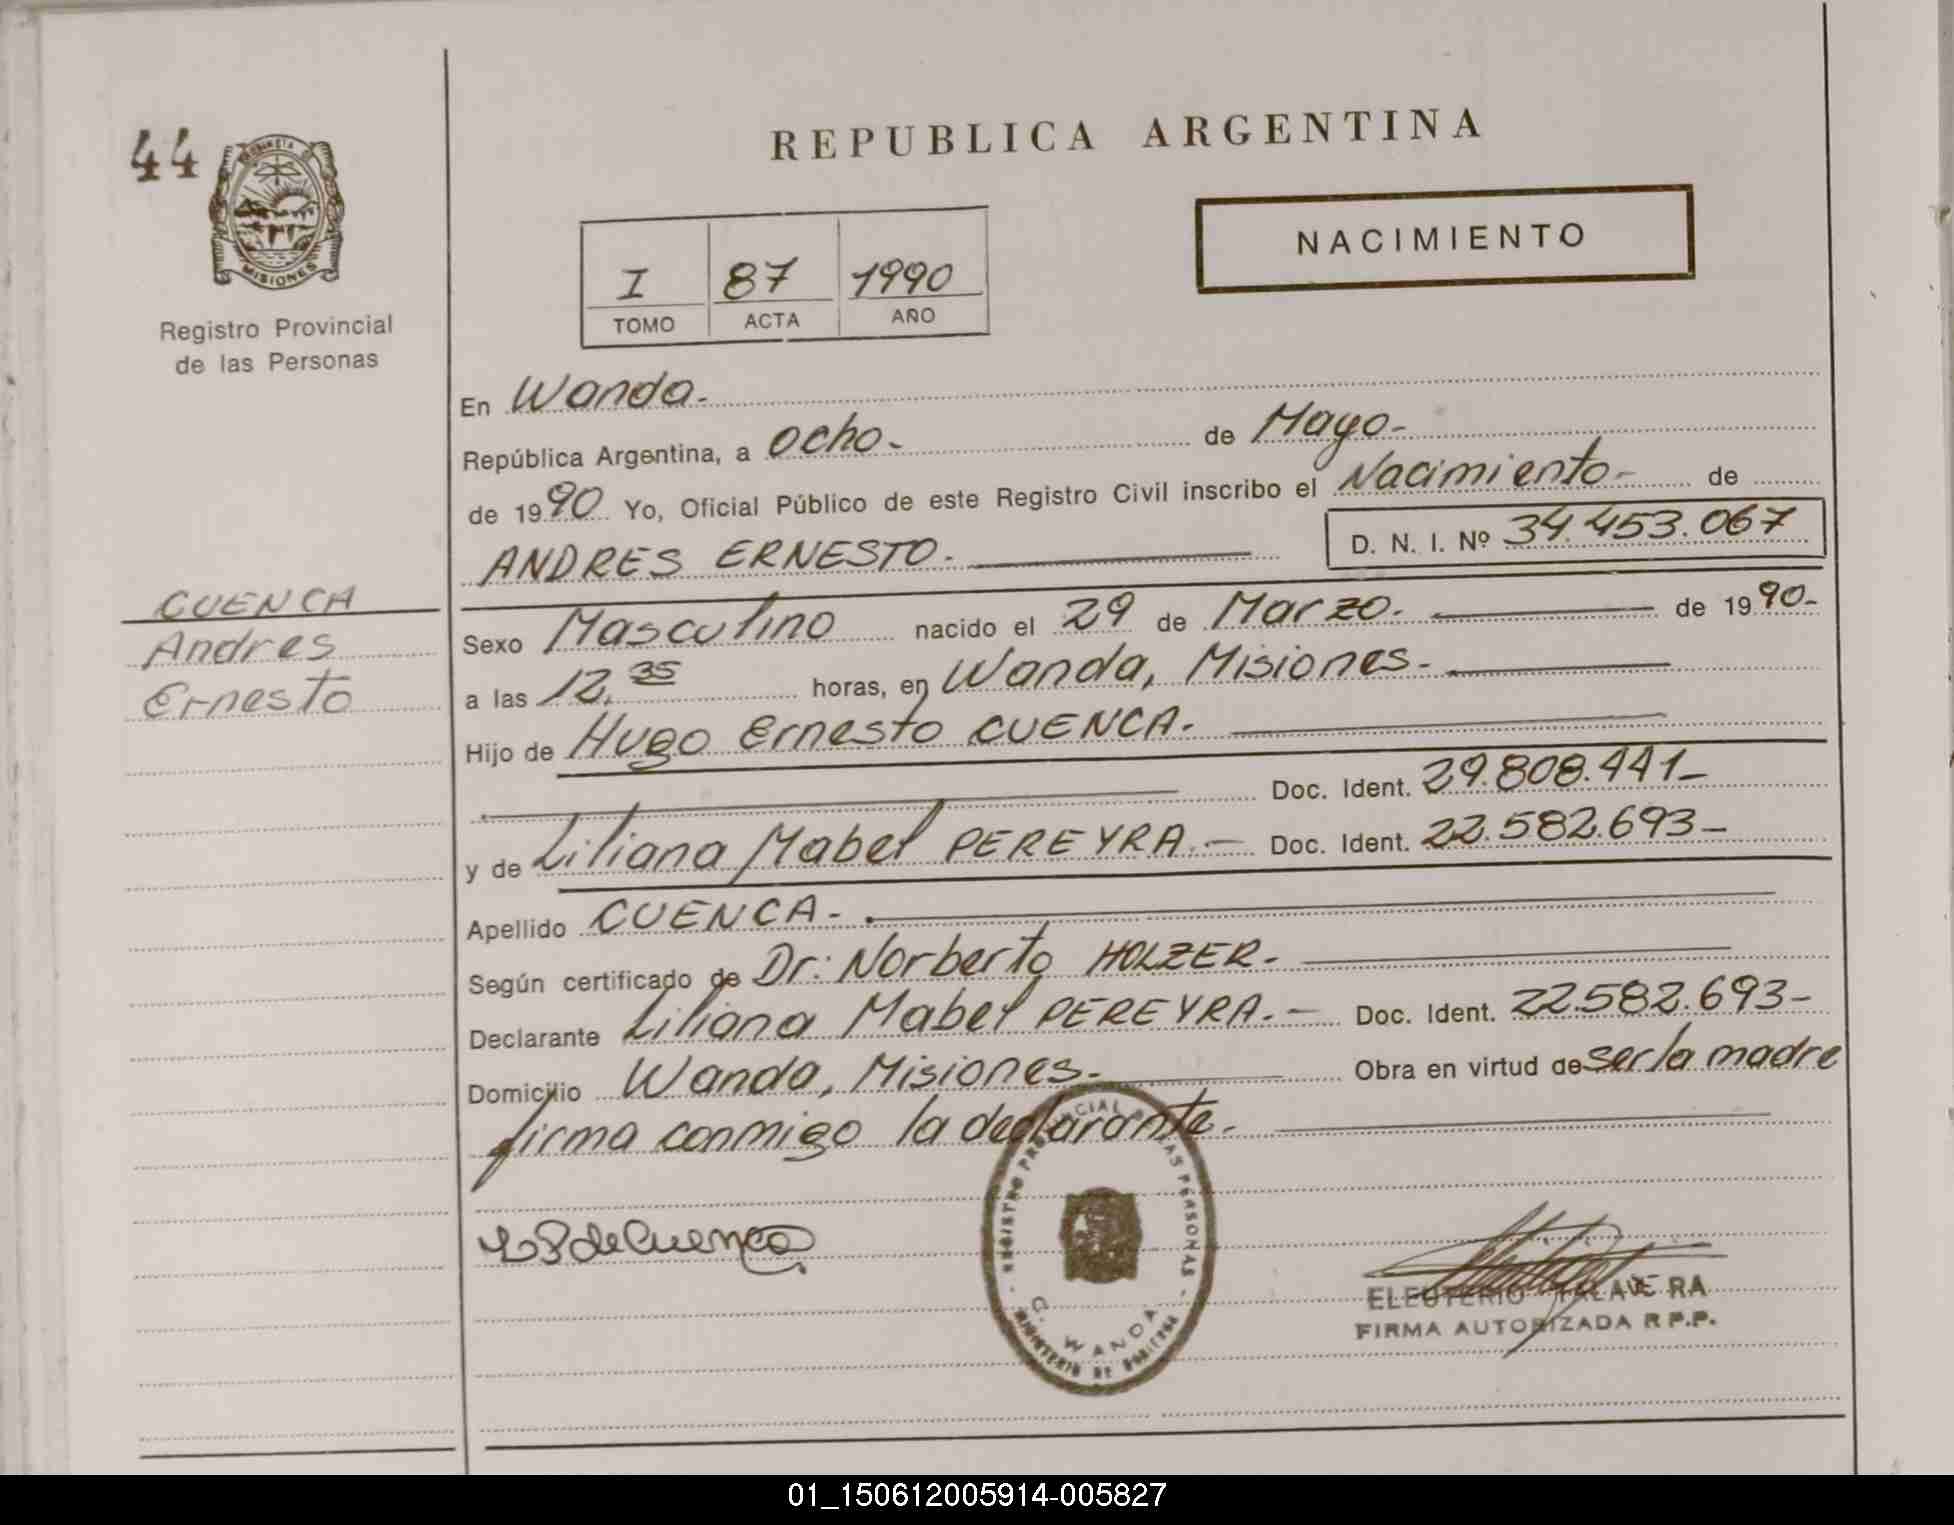 44
MISIONES
Registro Provincial
de las Personas
REPUBLICA ARGENTINA
NACIMIENTO
I 87 1990
TOMO ACTA AÑO
En Wanda.-
República Argentina, a ocho.- de Mayo.-
de 1990 Yo, Oficial Público de este Registro Civil inscribo el Nacimiento.- de
ANDRES ERNESTO.- D. N. I. Nº 34.453.067
CUENCA
Andres
Ernesto
Sexo Masculino nacido el 29 de Marzo.- de 1990.-
a las 12,35 horas, en Wanda, Misiones.-
Hijo de Hugo Ernesto CUENCA.-
Doc. Ident. 29.808.441-
y de Liliana Mabel PEREYRA.- Doc. Ident. 22.582.693-
Apellido CUENCA-.
Según certificado de Dr: Norberto HOLZER.-
Declarante Liliana Mabel PEREYRA.- Doc. Ident. 22.582.693-
Domicilio Wanda, Misiones.- Obra en virtud de ser la madre
firma conmigo la declarante.-
REGISTRO PROVINCIAL DE LAS PERSONAS
WANDA
MINISTERIO DE
L P de Cuenca
ELEUTERIO TALAVERA
FIRMA AUTORIZADA R.P.P.
01_150612005914-005827